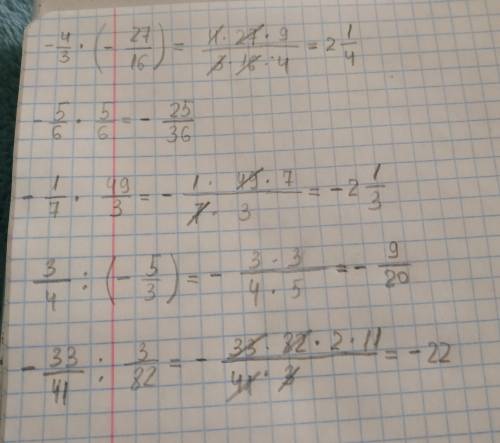 -4/3 · (-27/16) = 4 · 27 · 9 / 3 · 16 · 4 = 2 1/4
-5/6 · 5/6 = -25/36
-1/7 · 49/3 = -1 · 49 · 7 / 7 · 3 = -2 1/3
3/4 : (-5/3) = -3 · 3 / 4 · 5 = -9/20
-33/41 : 3/82 = -33 · 82 · 2 · 11 / 41 · 3 = -22